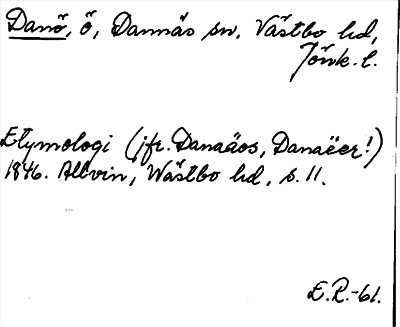 Danö, ö, Dannäs sn, Västbo hd,
Jönk. l.
Etymologi (jfr. Danaäos, Danaëer!)
1846. Allvin, Wästbo hd, s. 11.
E.R.-61.